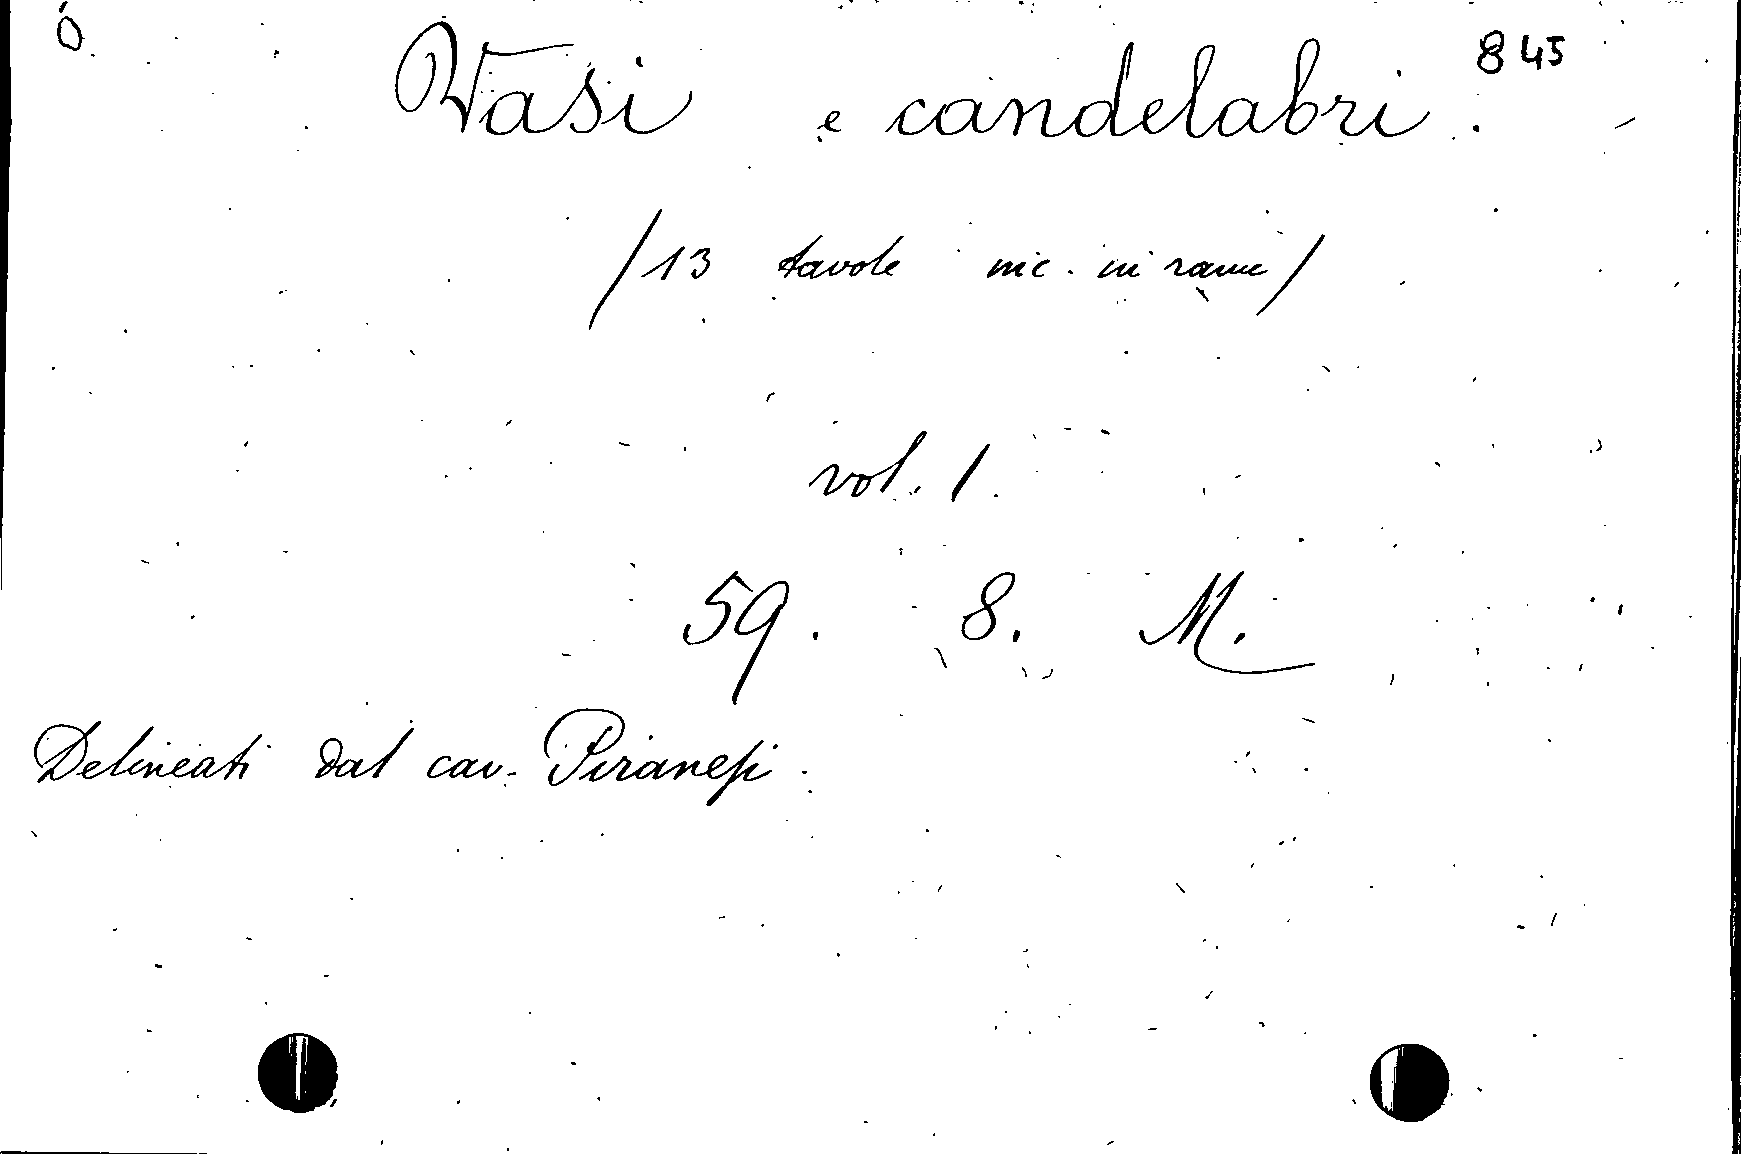 845
Vasi e candelabri.
/13 tavole inc. in rame/
vol. 1.
59. 8. M.
Delineati dal cav. Piranesi.